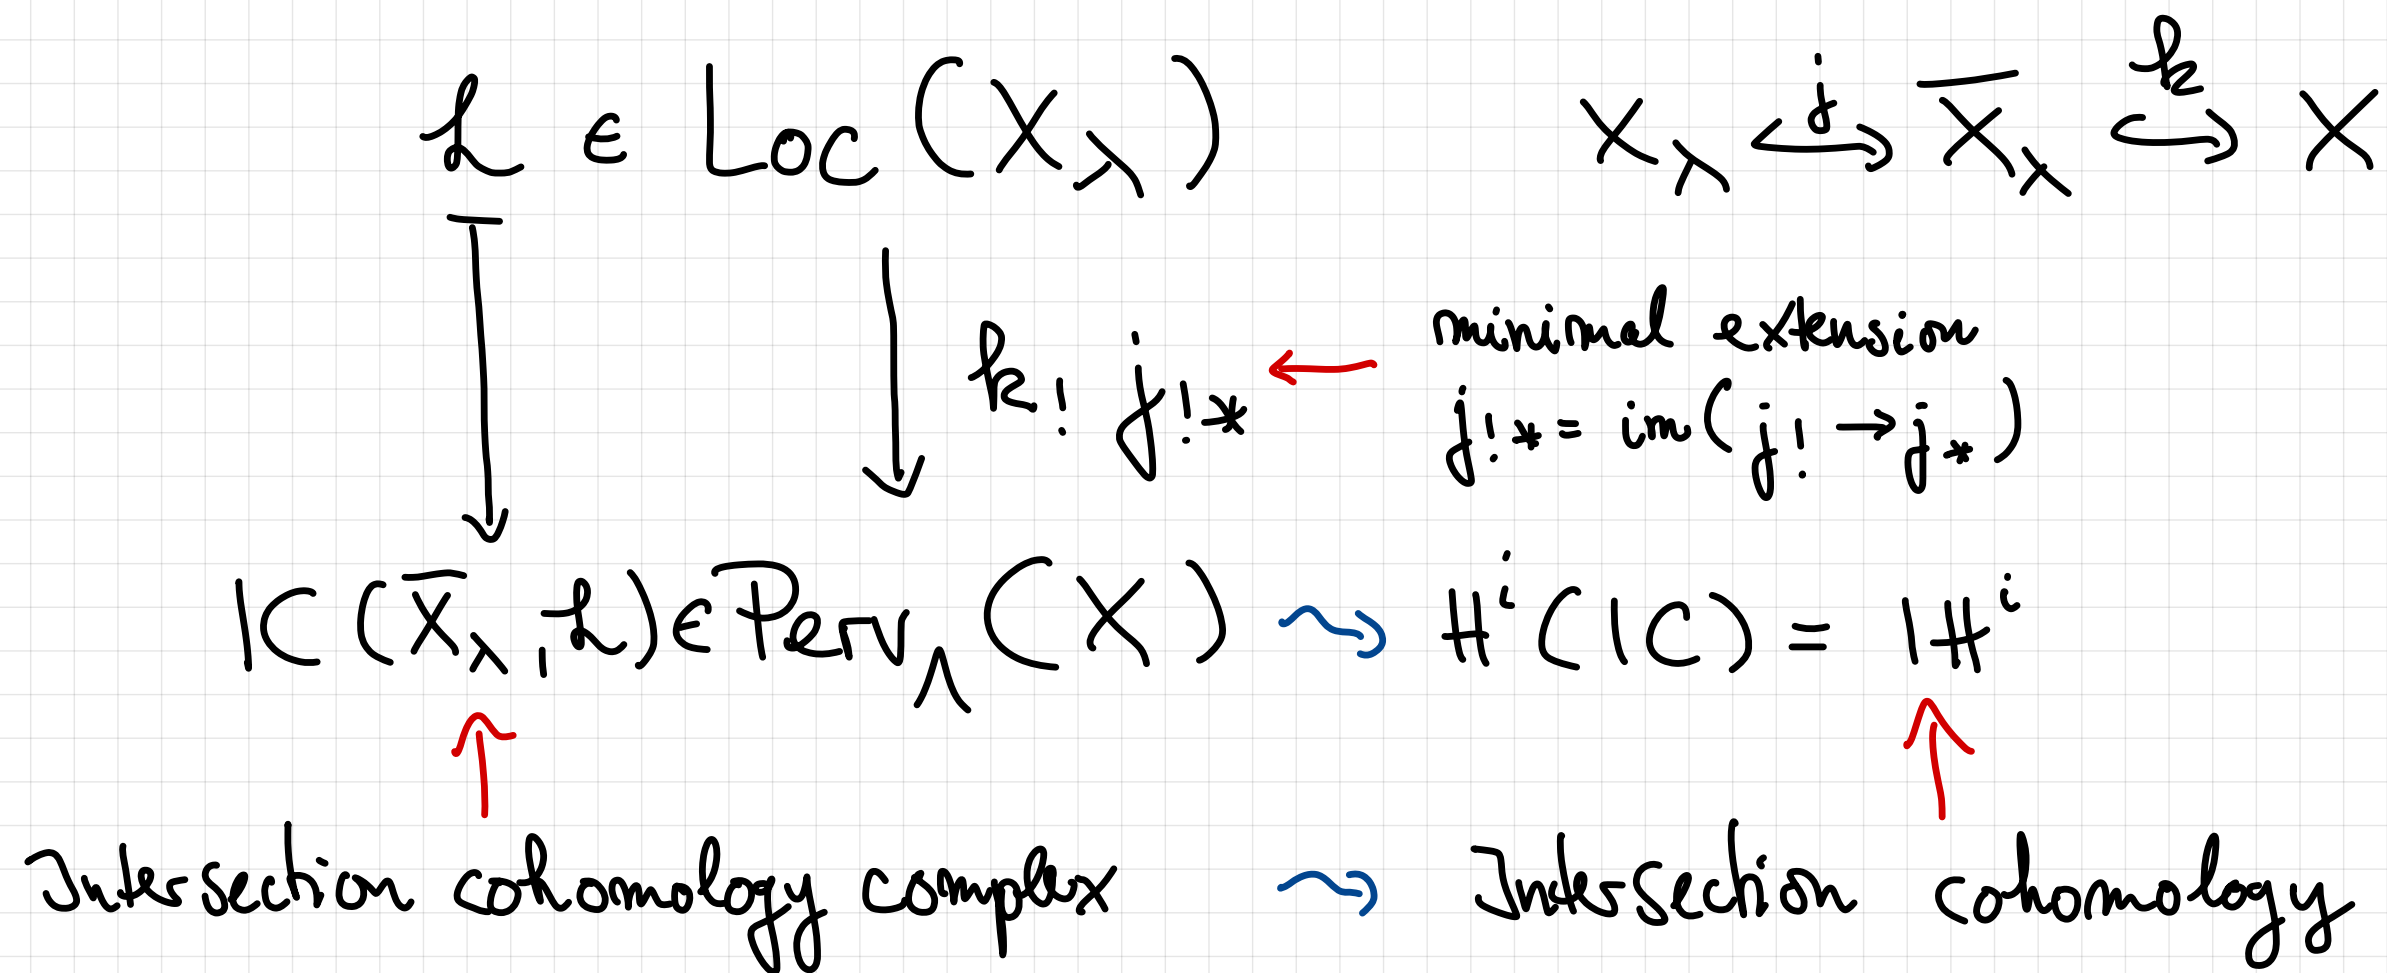 ℒ ∈ Loc(X_λ)    X_λ ↪ X̄_λ ↪ X
j    k
k_! j_!*    minimal extension
j_!* = im(j_! → j_*)
IC(X̄_λ, ℒ) ∈ Perv_Λ(X) ⇝ H^i(IC) = IH^i
Intersection cohomology complex ⇝ Intersection cohomology